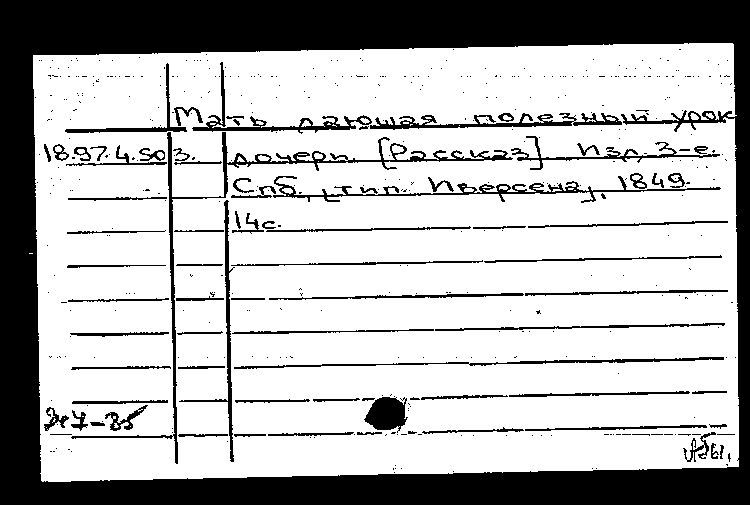 Мать дающая полезный урок
18.97.4.50 3. дочери. [Рассказ] Изд. 3-е.
Спб., [тип. Иверсена], 1849.
14с.